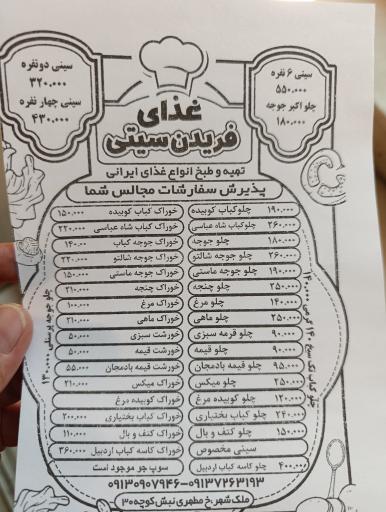 سینی دو نفره
۳۲۰.۰۰۰
سینی چهار نفره
۴۳۰.۰۰۰
سینی ۶ نفره
۵۵۰.۰۰۰
چلو اکبر جوجه
۱۸۰.۰۰۰
غذای
فریدن سیتی
تهیه و طبخ انواع غذای ایرانی
پذیرش سفارشات مجالس شما
چلوکباب کوبیده ۱۹۰.۰۰۰
خوراک کباب کوبیده ۱۵۰.۰۰۰
چلوکباب شاه عباسی ۲۶۰.۰۰۰
خوراک کباب شاه عباسی ۲۲۰.۰۰۰
چلو جوجه ۱۸۰.۰۰۰
خوراک جوجه کباب ۱۴۰.۰۰
چلو جوجه شالتو ۲۶۰.۰۰۰
خوراک جوجه شالتو ۲۲۰.۰۰۰
چلو جوجه ماستی ۱۹۰.۰۰۰
خوراک جوجه ماستی ۱۵۰.۰۰۰
چلو چنجه ۲۵۰.۰۰۰
خوراک چنجه ۲۱۰.۰۰۰
چلو مرغ ۱۴۰.۰۰۰
خوراک مرغ ۱۰۰.۰۰۰
چلو ماهی ۲۵۰.۰۰۰
خوراک ماهی ۲۱۰.۰۰۰
چلو قرمه سبزی ۹۰.۰۰۰
خورشت سبزی ۵۰.۰۰۰
چلو قیمه ۹۰.۰۰۰
خورشت قیمه ۵۰.۰۰۰
چلو قیمه بادمجان ۹۵.۰۰۰
خورشت قیمه بادمجان ۵۵.۰۰۰
چلو میکس ۲۵۰.۰۰۰
خوراک میکس ۲۱۰.۰۰۰
چلو کوبیده مرغ ۱۲۰.۰۰۰
خوراک کوبیده مرغ
چلو کباب بختیاری ۲۴۰.۰۰۰
خوراک کباب بختیاری ۲۰۰.۰۰۰
چلو کتف و بال ۱۵۰.۰۰۰
خوراک کتف و بال ۱۱۰.۰۰۰
سینی مخصوص
خوراک کاسه کباب اردبیل ۳۶۰.۰۰۰
چلو کاسه کباب اردبیل ۴۰۰.۰۰۰
سوپ جو موجود است
۰۹۱۳۰۹۰۷۹۴۶-۰۹۱۳۷۲۶۳۱۹۳
ملک شهر.خ مطهری نبش کوچه ۳۰